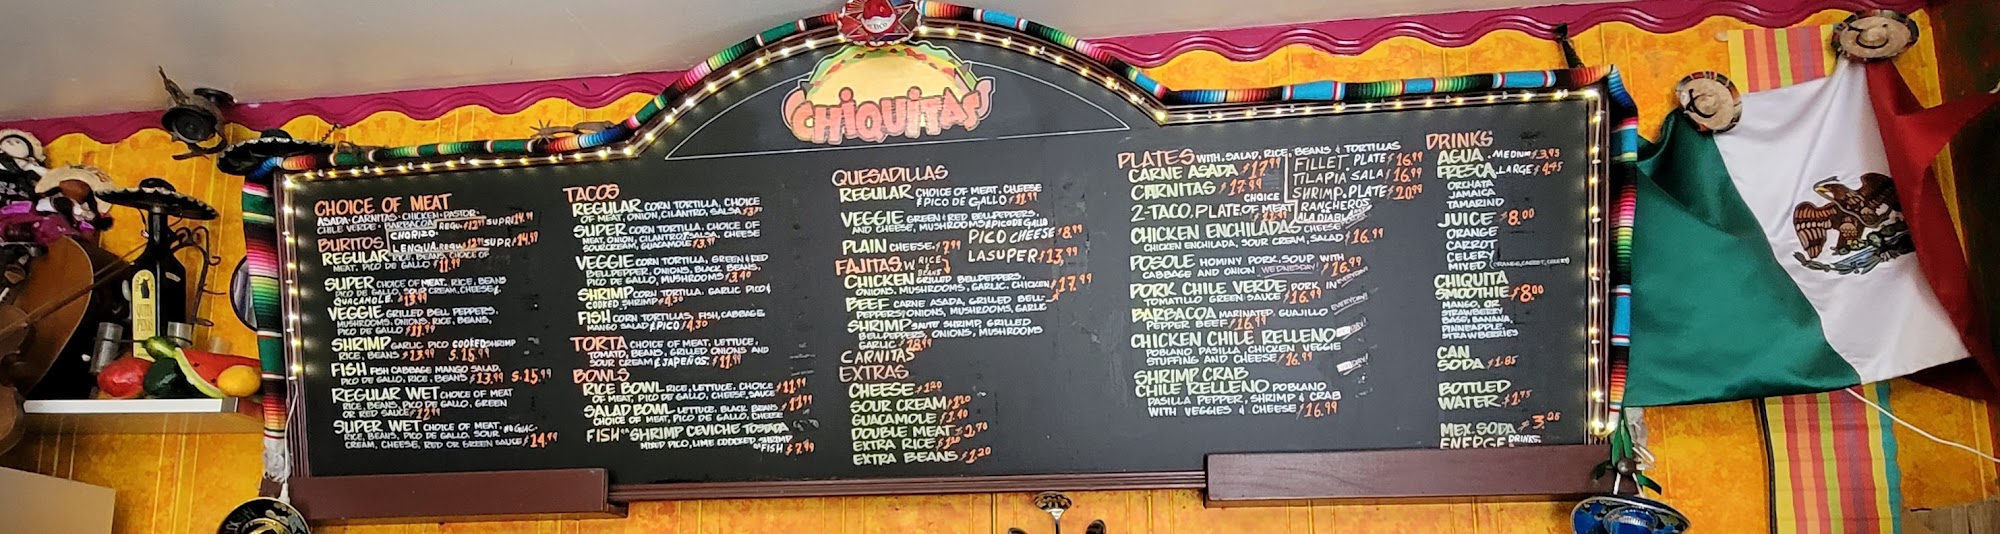 CHIQUITAS
CHOICE OF MEAT
ASADA · CARNITAS · CHICKEN · PASTOR ·
CHILE VERDE · BARBACOA
CHORIZO
LENGUA
BURITOS
REGULAR RICE, BEANS, CHOICE OF
MEAT, PICO DE GALLO $11.99
SUPER CHOICE OF MEAT, RICE, BEANS
PICO DE GALLO, SOUR CREAM, CHEESE &
GUACAMOLE. $13.99
VEGGIE GRILLED BELL PEPPERS,
MUSHROOMS, ONIONS, RICE, BEANS,
PICO DE GALLO $11.99
SHRIMP GARLIC PICO COOKED SHRIMP
RICE, BEANS $13.99 S. 15.99
FISH FISH CABBAGE MANGO SALAD,
PICO DE GALLO, RICE, BEANS $13.99 S. 15.99
REGULAR WET CHOICE OF MEAT
RICE, BEANS, PICO DE GALLO, GREEN
OR RED SAUCE $12.99
SUPER WET CHOICE OF MEAT, NO GUAC-
RICE, BEANS, PICO DE GALLO, SOUR
CREAM, CHEESE, RED OR GREEN SAUCE $14.99
TACOS
REGULAR CORN TORTILLA, CHOICE
OF MEAT, ONION, CILANTRO, SALSA
SUPER CORN TORTILLA, CHOICE OF
MEAT, ONION, CILANTRO, SALSA, CHEESE
SOUR CREAM, GUACAMOLE
VEGGIE CORN TORTILLA, GREEN & RED
BELLPEPPER, ONIONS, BLACK BEANS,
PICO DE GALLO, MUSHROOMS
SHRIMP CORN TORTILLA, GARLIC PICO &
COOKED SHRIMP $4.30
FISH CORN TORTILLAS, FISH, CABBAGE
MANGO SALAD & PICO $4.30
TORTA CHOICE OF MEAT, LETTUCE,
TOMATO, BEANS, GRILLED ONIONS AND
SOUR CREAM & JAPEÑOS. $11.99
BOWLS
RICE BOWL RICE, LETTUCE, CHOICE $11.99
OF MEAT, PICO DE GALLO, CHEESE, SAUCE
SALAD BOWL LETTUCE, BLACK BEANS $11.99
CHOICE OF MEAT, PICO DE GALLO, CHEESE
FISH OR SHRIMP CEVICHE TOSTADA
MIXED PICO, LIME COOCKED SHRIMP
OR FISH $7.99
QUESADILLAS
REGULAR CHOICE OF MEAT, CHEESE
& PICO DE GALLO $11.99
VEGGIE GREEN & RED BELLPEPPERS,
AND CHEESE, MUSHROOMS & PICO DE GALLO
PLAIN CHEESE $7.99 PICO CHEESE $8.99
LA SUPER $13.99
FAJITAS W RICE BEANS
CHICKEN GRILLED BELLPEPPERS,
ONIONS, MUSHROOMS, GARLIC, CHICKEN $17.99
BEEF CARNE ASADA, GRILLED BELL-
PEPPERS, ONIONS, MUSHROOMS, GARLIC
SHRIMP SAUTE SHRIMP, GRILLED
BELLPEPPERS, ONIONS, MUSHROOMS
GARLIC
CARNITAS
EXTRAS
CHEESE $1.20
SOUR CREAM $1.20
GUACAMOLE
DOUBLE MEAT $2.70
EXTRA RICE $1.20
EXTRA BEANS $1.20
PLATES WITH, SALAD, RICE, BEANS & TORTILLAS
CARNE ASADA $17.99
CARNITAS $17.99
FILLET PLATE $16.99
TILAPIA SALA $16.99
SHRIMP PLATE $20.99
RANCHEROS
ALA DIABLA
2-TACO PLATE CHOICE OF MEAT
CHICKEN ENCHILADAS CHEESE
CHICKEN ENCHILADA, SOUR CREAM, SALAD $16.99
POSOLE HOMINY PORK, SOUP WITH
CABBAGE AND ONION WEDNESDAY! $16.99
PORK CHILE VERDE PORK IN EVERYDAY!
TOMATILLO GREEN SAUCE $16.99
BARBACOA MARINATED GUAJILLO EVERYDAY!
PEPPER BEEF $16.99
CHICKEN CHILE RELLENO
POBLANO PASILLA, CHICKEN VEGGIE
STUFFING AND CHEESE $16.99
SHRIMP CRAB
CHILE RELLENO POBLANO
PASILLA PEPPER, SHRIMP & CRAB
WITH VEGGIES & CHEESE $16.99
DRINKS
AGUA · MEDIUM $3.95
FRESCA · LARGE $4.95
ORCHATA
JAMAICA
TAMARIND
JUICE $8.00
ORANGE
CARROT
CELERY
MIXED (ORANGE, CARROT, CELERY)
CHIQUITA
SMOOTHIE $8.00
MANGO, OR
STRAWBERRY
BASE, BANANA,
PINNEAPPLE,
STRAWBERRIES
CAN
SODA $1.85
BOTTLED
WATER $1.75
MEX. SODA $3.25
ENERGE DRINKS